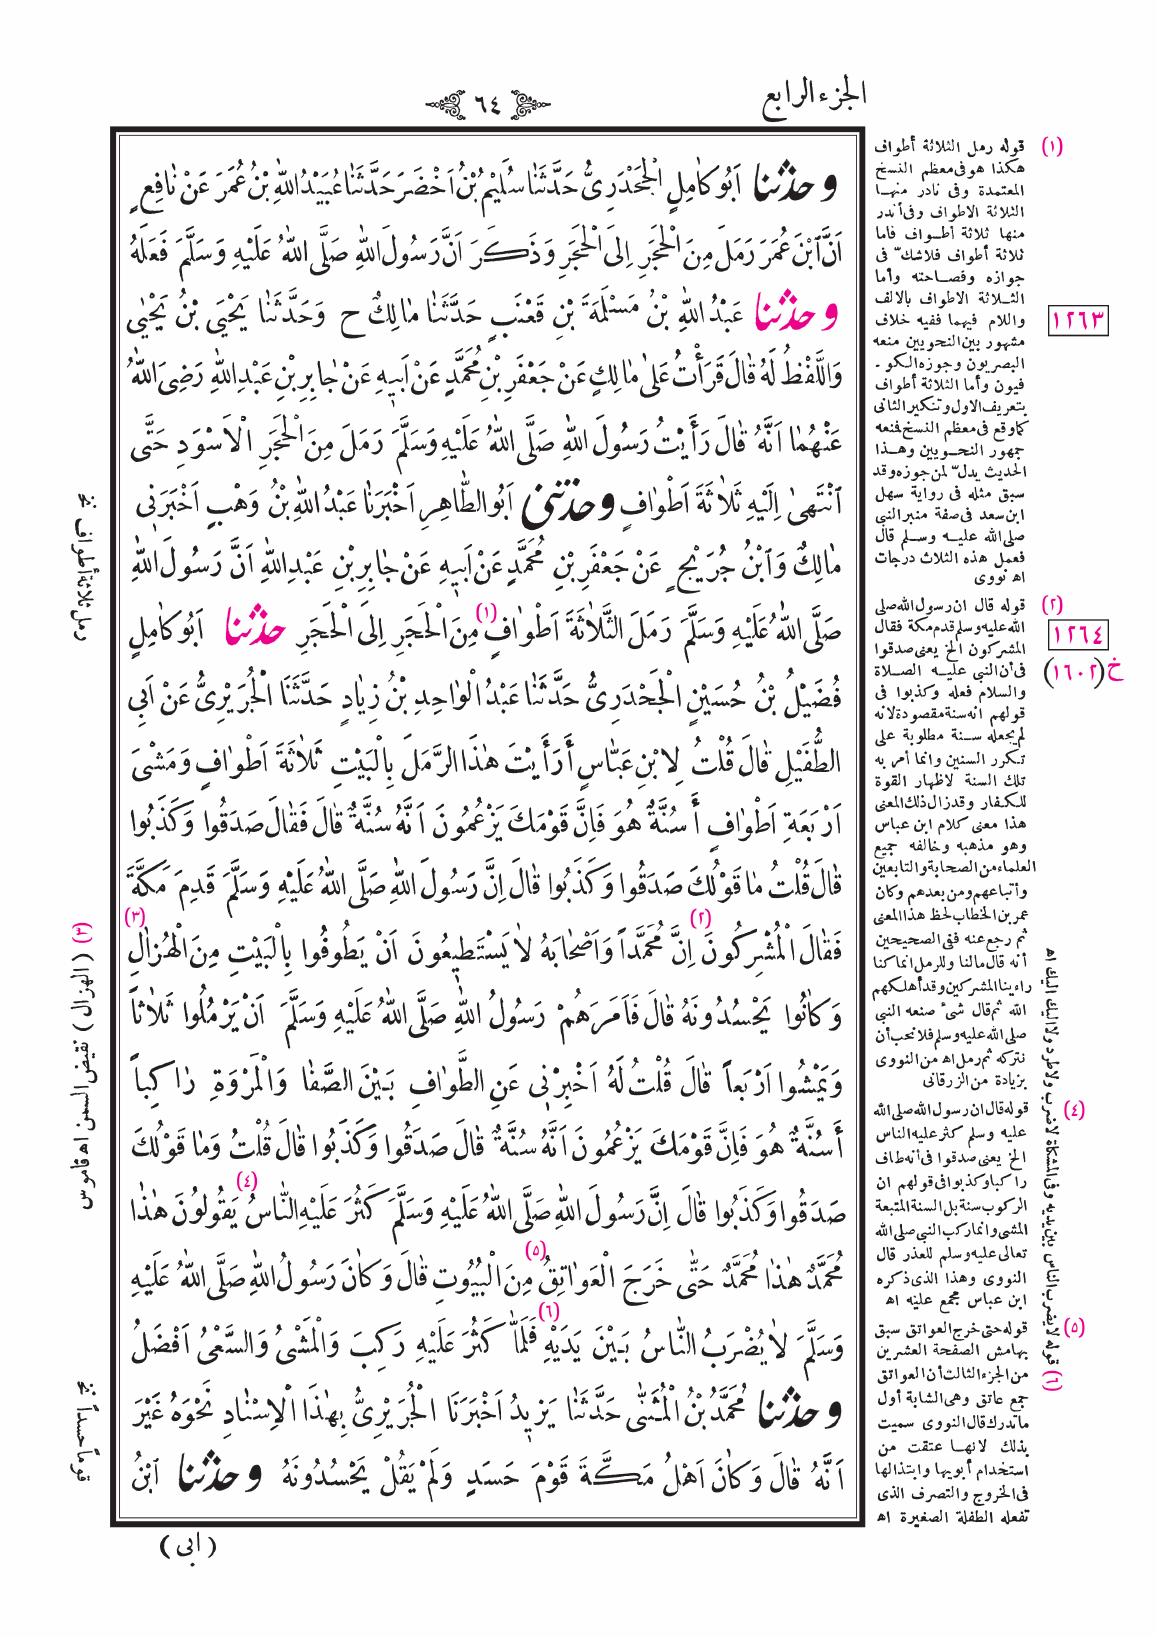 الجزء الرابع
٦٤
وحدثنا اَبُو كَامِلٍ الْجَحْدَرِىُّ حَدَّثَنَا سُلَيْمُ بْنُ اَخْضَرَ حَدَّثَنَا عُبَيْدُ اللهِ بْنُ عُمَرَ عَنْ نَافِعٍ
اَنَّ ابْنَ عُمَرَ رَمَلَ مِنَ الْحَجَرِ اِلَى الْحَجَرِ وَذَكَرَ اَنَّ رَسُولَ اللهِ صَلَّى اللهُ عَلَيْهِ وَسَلَّمَ فَعَلَهُ
وحدثنا عَبْدُ اللهِ بْنُ مَسْلَمَةَ بْنِ قَعْنَبٍ حَدَّثَنَا مَالِكٌ ح وَحَدَّثَنَا يَحْيَى بْنُ يَحْيٰى
وَاللَّفْظُ لَهُ قَالَ قَرَأْتُ عَلىٰ مَالِكٍ عَنْ جَعْفَرِ بْنِ مُحَمَّدٍ عَنْ اَبيهِ عَنْ جَابِرِ بْنِ عَبْدِ اللهِ رَضِىَ اللهُ
عَنْهُمَا اَنَّهُ قَالَ رَأَيْتُ رَسُولَ اللهِ صَلَّى اللهُ عَلَيْهِ وَسَلَّمَ رَمَلَ مِنَ الْحَجَرِ الْاَسْوَدِ حَتَّى
انْتَهىٰ اِلَيْهِ ثَلاَثَةَ اَطْوَافٍ وحدثنى اَبُو الطَّاهِرِ اَخْبَرَنَا عَبْدُ اللهِ بْنُ وَهْبٍ اَخْبَرَنِى
مَالِكٌ وَابْنُ جُرَيْجٍ عَنْ جَعْفَرِ بْنِ مُحَمَّدٍ عَنْ اَبيهِ عَنْ جَابِرِ بْنِ عَبْدِ اللهِ اَنَّ رَسُولَ اللهِ
صَلَّى اللهُ عَلَيْهِ وَسَلَّمَ رَمَلَ الثَّلاَثَةَ اَطْوَافٍ (١) مِنَ الْحَجَرِ اِلَى الْحَجَرِ حدثنا اَبُو كَامِلٍ
فُضَيْلُ بْنُ حُسَيْنٍ الْجَحْدَرِىُّ حَدَّثَنَا عَبْدُ الْوَاحِدِ بْنُ زِيَادٍ حَدَّثَنَا الْجُرَيْرِىُّ عَنْ اَبِى
الطُّفَيْلِ قَالَ قُلْتُ لِابْنِ عَبَّاسٍ أَرَأَيْتَ هٰذَا الرَّمَلَ بِالْبَيْتِ ثَلاَثَةَ اَطْوَافٍ وَمَشْىَ
اَرْبَعَةِ اَطْوَافٍ أَسُنَّةٌ هُوَ فَاِنَّ قَوْمَكَ يَزْعُمُونَ اَنَّهُ سُنَّةٌ قَالَ فَقَالَ صَدَقُوا وَكَذَبُوا
قَالَ قُلْتُ مَا قَوْلُكَ صَدَقُوا وَكَذَبُوا قَالَ اِنَّ رَسُولَ اللهِ صَلَّى اللهُ عَلَيْهِ وَسَلَّمَ قَدِمَ مَكَّةَ
فَقَالَ الْمُشْرِكُونَ (٢) اِنَّ مُحَمَّداً وَاَصْحَابَهُ لاَ يَسْتَطِيعُونَ اَنْ يَطُوفُوا بِالْبَيْتِ مِنَ الْهُزَالِ (٣)
وَكَانُوا يَحْسُدُونَهُ قَالَ فَاَمَرَهُمْ رَسُولُ اللهِ صَلَّى اللهُ عَلَيْهِ وَسَلَّمَ اَنْ يَرْمُلُوا ثَلاَثاً
وَيَمْشُوا اَرْبَعاً قَالَ قُلْتُ لَهُ اَخْبِرْنِى عَنِ الطَّوَافِ بَيْنَ الصَّفَا وَالْمَرْوَةِ رَاكِباً
أَسُنَّةٌ هُوَ فَاِنَّ قَوْمَكَ يَزْعُمُونَ اَنَّهُ سُنَّةٌ قَالَ صَدَقُوا وَكَذَبُوا قَالَ قُلْتُ وَمَا قَوْلُكَ
صَدَقُوا وَكَذَبُوا قَالَ اِنَّ رَسُولَ اللهِ صَلَّى اللهُ عَلَيْهِ وَسَلَّمَ كَثُرَ عَلَيْهِ النَّاسُ (٤) يَقُولُونَ هٰذَا
مُحَمَّدٌ هٰذَا مُحَمَّدٌ حَتّٰى خَرَجَ الْعَوَاتِقُ (٥) مِنَ الْبُيُوتِ قَالَ وَكَانَ رَسُولُ اللهِ صَلَّى اللهُ عَلَيْهِ
وَسَلَّمَ لاَ يُضْرَبُ النَّاسُ بَيْنَ يَدَيْهِ (٦) فَلَمَّا كَثُرَ عَلَيْهِ رَكِبَ وَالْمَشْىُ وَالسَّعْىُ اَفْضَلُ
وحدثنا مُحَمَّدُ بْنُ الْمُثَنّٰى حَدَّثَنَا يَزيدُ اَخْبَرَنَا الْجُرَيْرِىُّ بِهٰذَا الْاِسْنَادِ نَحْوَهُ غَيْرَ
اَنَّهُ قَالَ وَكَانَ اَهْلُ مَكَّةَ قَوْمَ حَسَدٍ وَلَمْ يَقُلْ يَحْسُدُونَهُ وحدثنا ابْنُ
( ابى )
(١) قوله رمل الثلاثة أطواف
هكذا هو فى معظم النسخ
المعتمدة وفى نادر منهـا
الثلاثة الاطواف وفى أندر
منها ثلاثة أطـواف فاما
ثلاثة أطواف فلاشكّ فى
جوازه وفصـاحته وأما
الثـلاثة الاطواف بالالف
واللام فيهما ففيه خلاف
مشهور بين النحويين منعه
البصريون وجوزه الكو -
فيون وأما الثلاثة أطواف
بتعريف الاول وتنكير الثانى
كما وقع فى معظم النسخ فمنعه
جمهور النحـويين وهـذا
الحديث يدلّ لمن جوزه وقد
سبق مثله فى رواية سهل
ابن سعد فى صفة منبر النبى
صلى الله عليـه وسـلم قال
فعمل هذه الثلاث درجات
اه نووى
(٢) قوله قال ان رسول الله صلى
الله عليه وسلم قدم مكة فقال
المشركون الخ يعنى صدقوا
فى أن النبى عليـه الصـلاة
والسلام فعله وكذبوا فى
قولهم انه سنة مقصودة لانه
لم يجعله سـنة مطلوبة على
تـكرر السنين وانما أمر به
تلك السنة لاظهار القوة
للكفار وقد زال ذلك المعنى
هذا معنى كلام ابن عباس
وهو مذهبه وخالفه جميع
العلماء من الصحابة والتابعين
وأتباعهم ومن بعدهم وكان
عمر بن الخطاب لحظ هذا المعنى
ثم رجع عنه ففى الصحيحين
أنه قال مالنا وللرمل انما كنا
راءينا المشركين وقد أهلكهم
الله ثم قال شىء صنعه النبى
صلى الله عليه وسلم فلا نحب أن
نتركه ثم رمل اه من النووى
بزيادة من الزرقانى
(٤) قوله قال ان رسول الله صلى الله
عليه وسلم كثر عليه الناس
الخ يعنى صدقوا فى أنه طاف
راكبا وكذبوا فى قولهم ان
الركوب سنة بل السنة المتبعة
المشى وانما ركب النبى صلى الله
تعالى عليه وسلم للعذر قال
النووى وهذا الذى ذكره
ابن عباس مجمع عليه اه
(٥) قوله حتى خرج العواتق سبق
بهامش الصفحة العشرين
من الجزء الثالث أن العواتق
جمع عاتق وهى الشابة أول
ماتدرك قال النووى سميت
بذلك لانهـا عتقت من
استخدام أبويها وابتذالها
فى الخروج والتصرف الذى
تفعله الطفلة الصغيرة اه
(٦) قوله لا يضرب الناس بين يديه وفى المشكاة لا ضرب ولا طرد ولا اليك اليك اه
١٢٦٣
١٢٦٤
خ(١٦٠٢)
رمل ثلاثة أطواف نخ
(٣) ( الهزال ) نقيض السمن اه قاموس
قوماً حسداً نخ